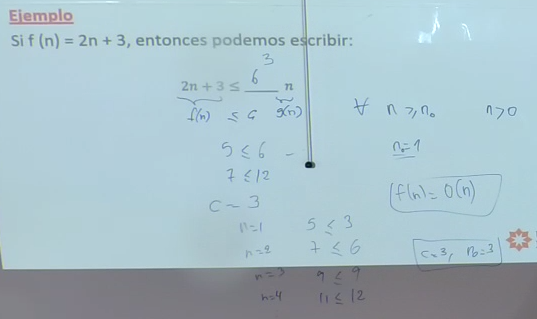 Ejemplo
Si f (n) = 2n + 3, entonces podemos escribir:
3
2n + 3 ≤ 6 n
f(n) ≤ c g(n) ∀ n ≥ n₀ n>0
5 ≤ 6 n₀=1
7 ≤ 12
f(n) = O(n)
c = 3
n=1 5 ≤ 3
n=2 7 ≤ 6 c=3, n₀=3
n=3 9 ≤ 9
n=4 11 ≤ 12